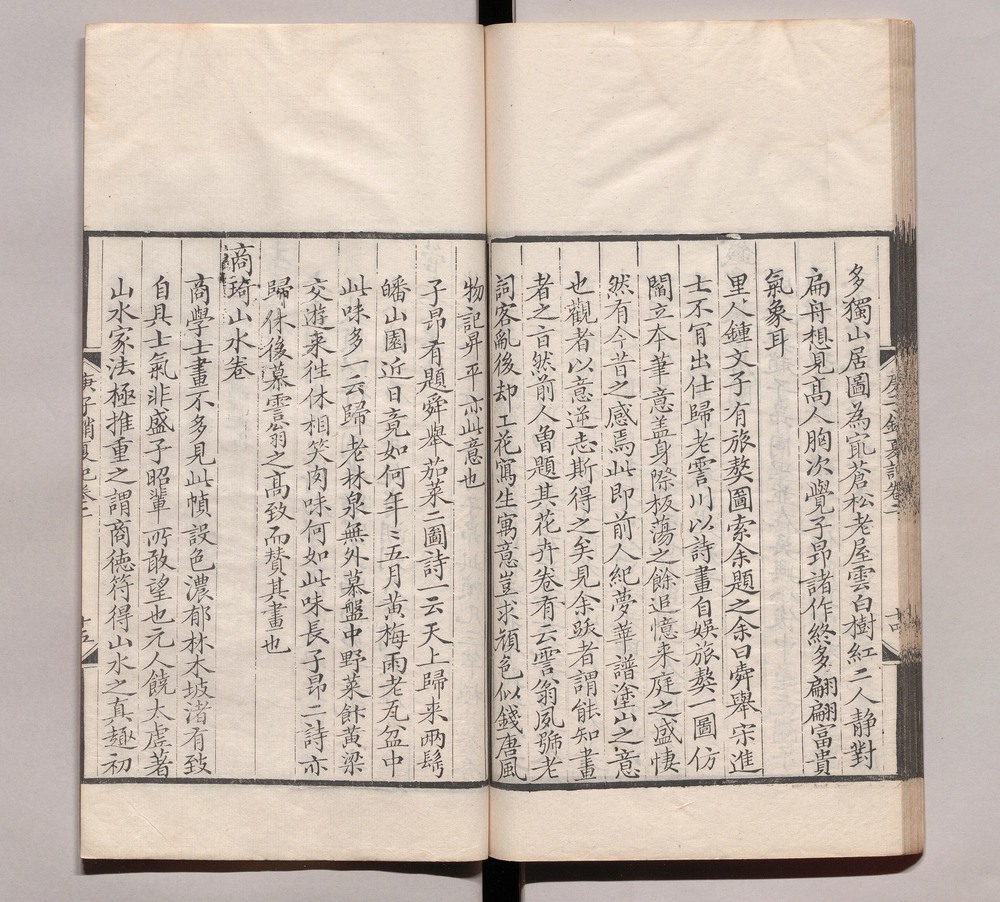 多獨山居圖為㝡蒼松老屋雲白樹紅二人静對
扁舟想見髙人胸次覺子昂諸作終多翩翩富貴
氣象耳
里人鍾文子有旅獒圖索余題之余曰舜舉宋進
士不肎出仕歸老霅川以詩畫自娛旅獒一圖仿
閻立本筆意盖身際板蕩之餘追憶来庭之盛悽
然有今昔之感焉此即前人紀夢華譜塗山之意
也觀者以意逆志斯得之矣見余䟦者謂能知畫
者之㫖然前人曽題其花卉卷有云霅翁夙號老
詞客亂後却工花寫生寓意豈求顔色似錢唐風
物記昇平亦此意也
子昂有題舜舉茄菜二圖詩一云天上歸来兩鬂
皤山園近日竟如何年〻五月黄梅雨老瓦盆中
此味多一云歸老林泉無外慕盤中野菜飰黄粱
交遊来徃休相笑肉味何如此味長子昂二詩亦
歸休後慕霅翁之髙致而賛其畫也
商琦山水卷
商學士畫不多見此幀設色濃郁林木坡渚有致
自具士氣非盛子昭輩所敢望也元人饒太虗著
山水家法極推重之謂商徳符得山水之真趣初
庚子銷夏記卷二
十五